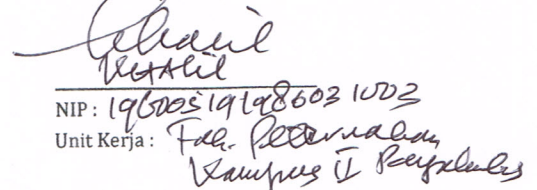 Khalil
NIP : 196005191986031003
Unit Kerja : Fak. Peternakan
Kampus II Payakumbuh